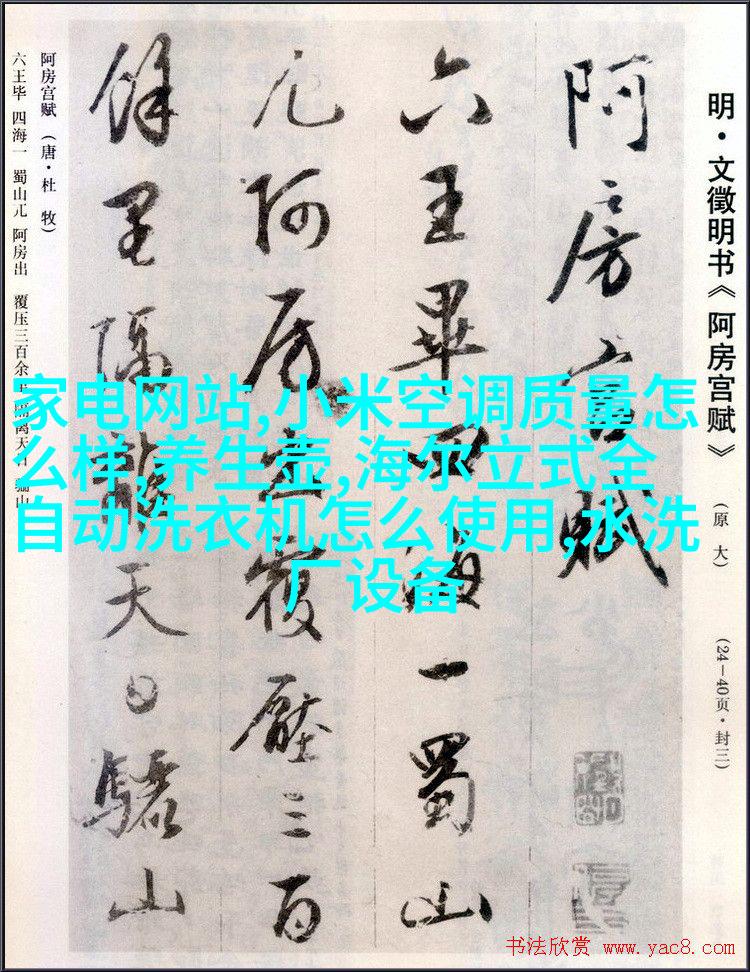 明·文徵明书《阿房宫赋》
(原大)
(24—40页·封三)
阿房宫赋
六王畢四海一蜀山
兀阿房出覆壓三百
餘里隔離天日驪山
阿房宫赋(唐·杜牧)
六王毕 四海一 蜀山兀 阿房出 覆压三百余里 隔离天日 骊山
家电网站,小米空调质量怎
么样,养生壶,海尔立式全
自动洗衣机怎么使用,水洗
厂设备
书法欣赏 www.yac8.com